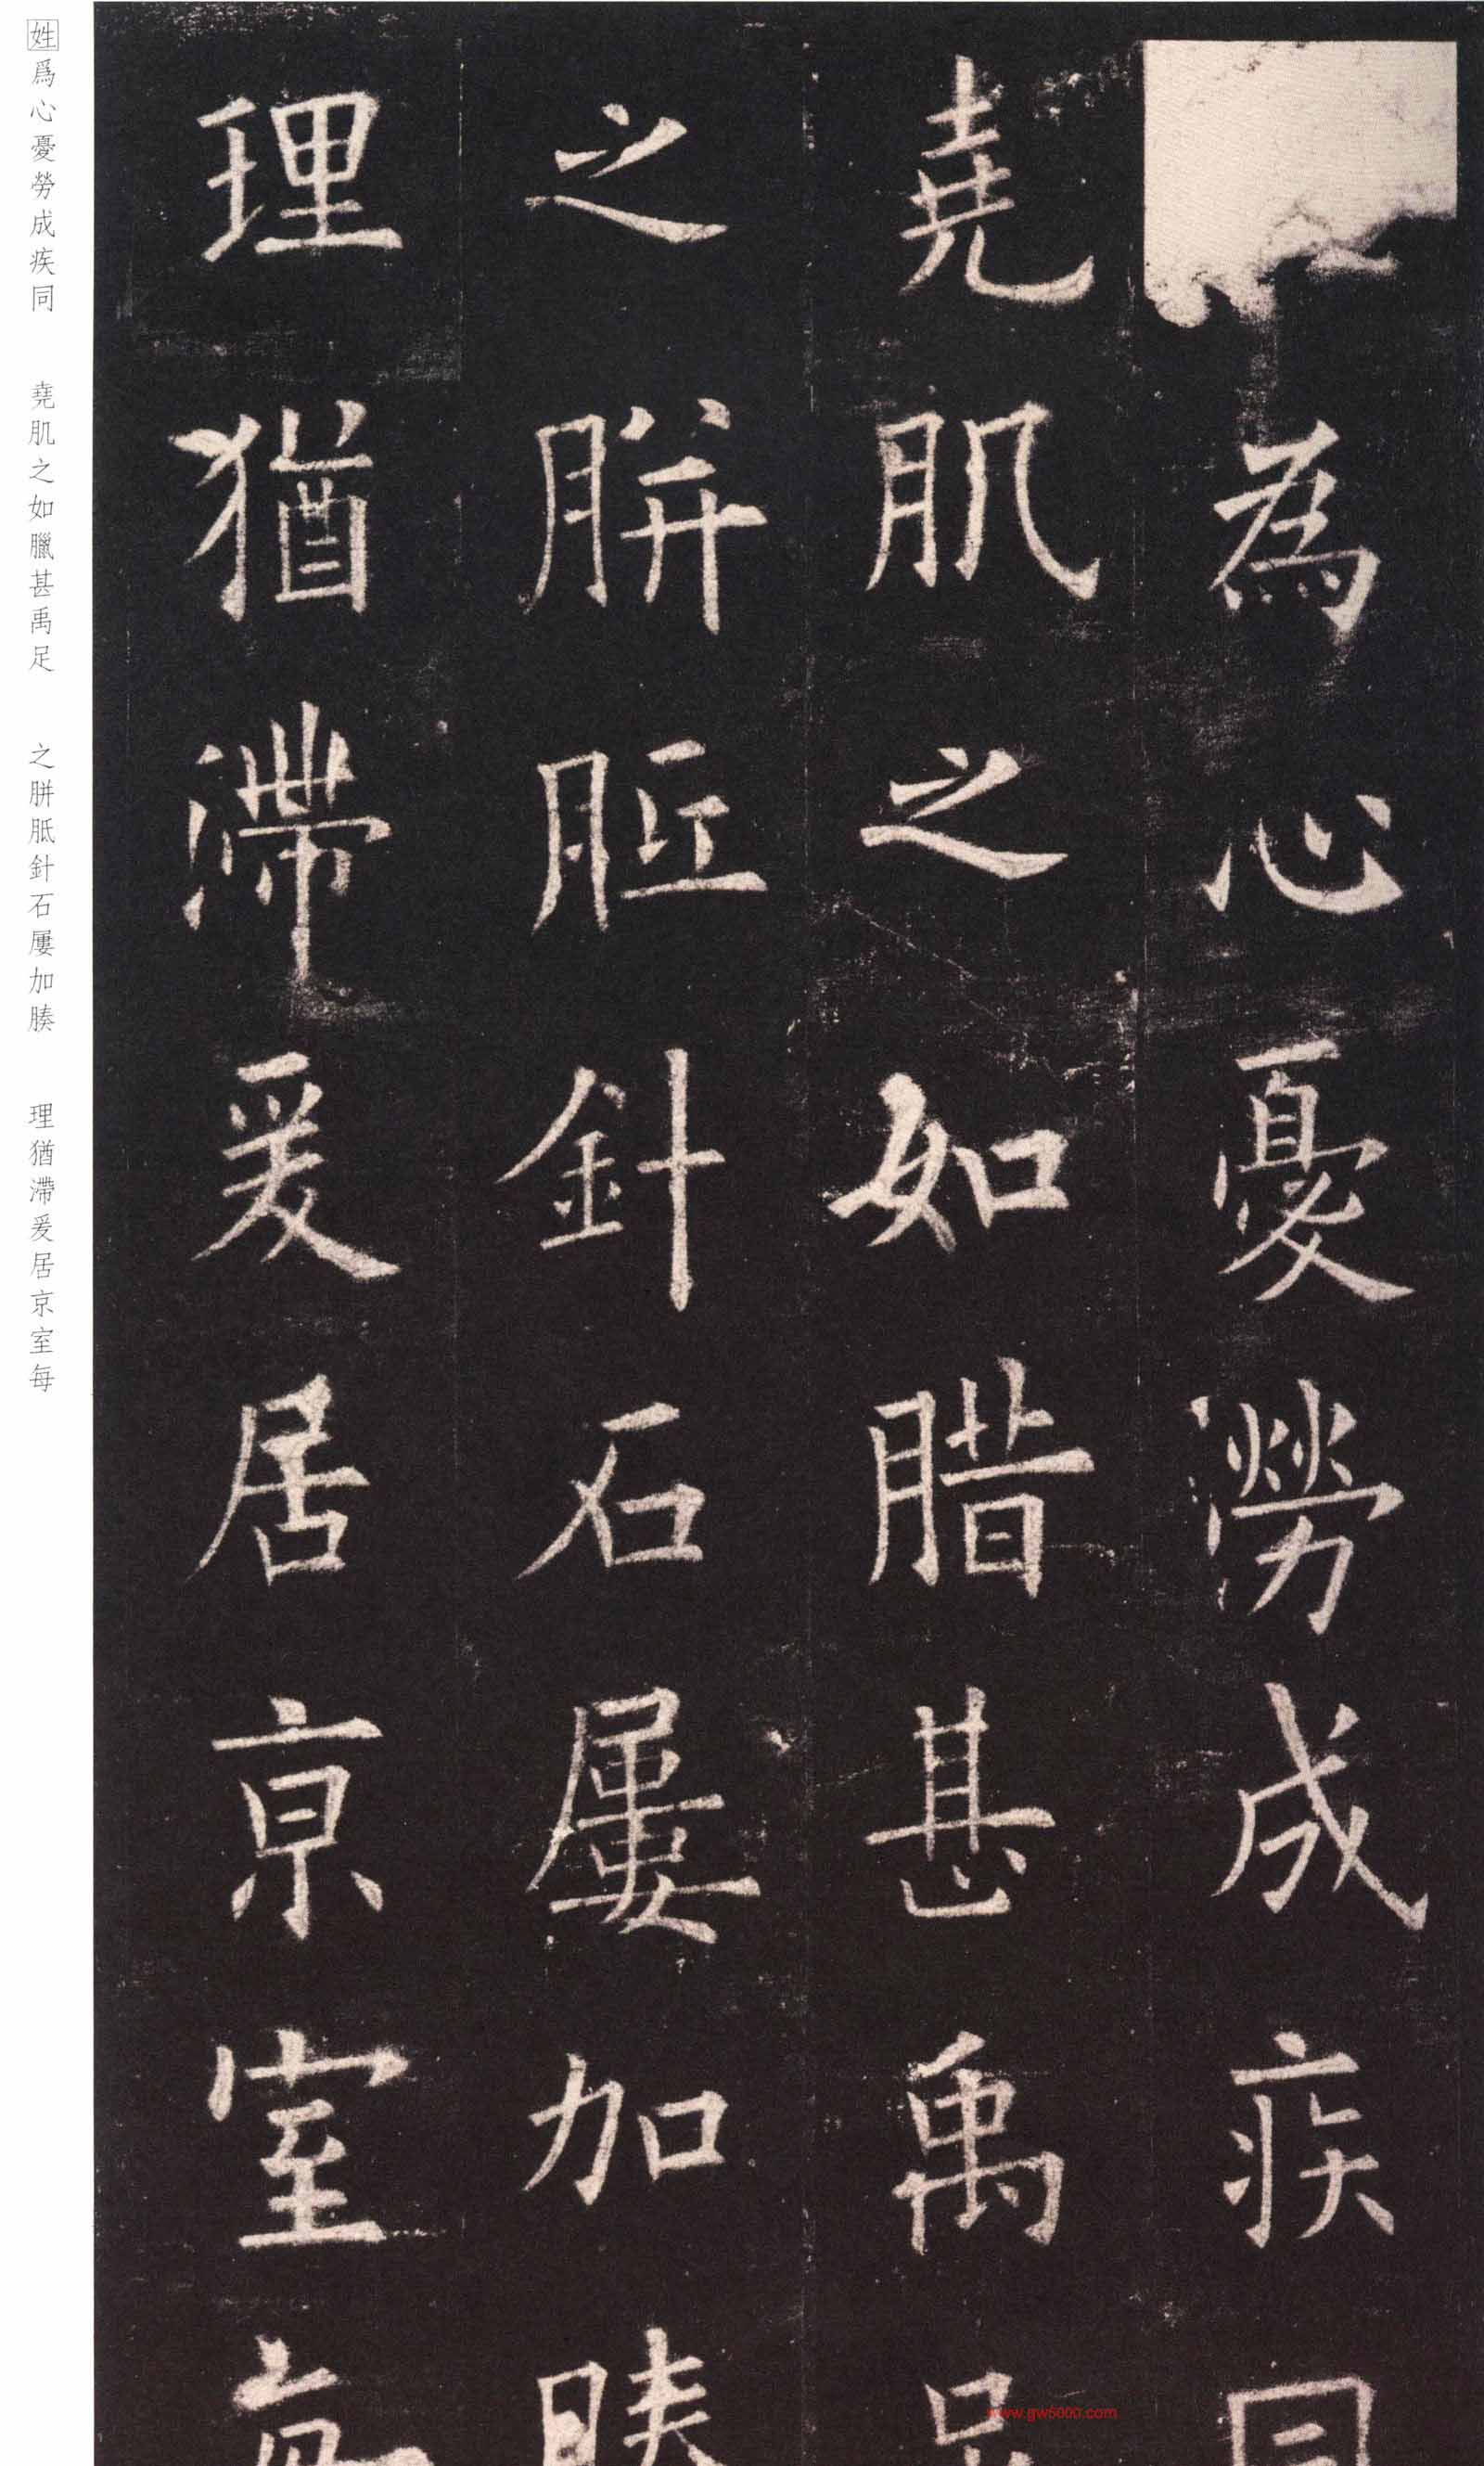 為心憂勞成疾同
堯肌之如腊甚禹足
之胼胝針石屢加腠
理猶滯爰居京室每
姓爲心憂勞成疾同 堯肌之如臘甚禹足 之胼胝針石屢加腠 理猶滯爰居京室每
www.gw5000.com